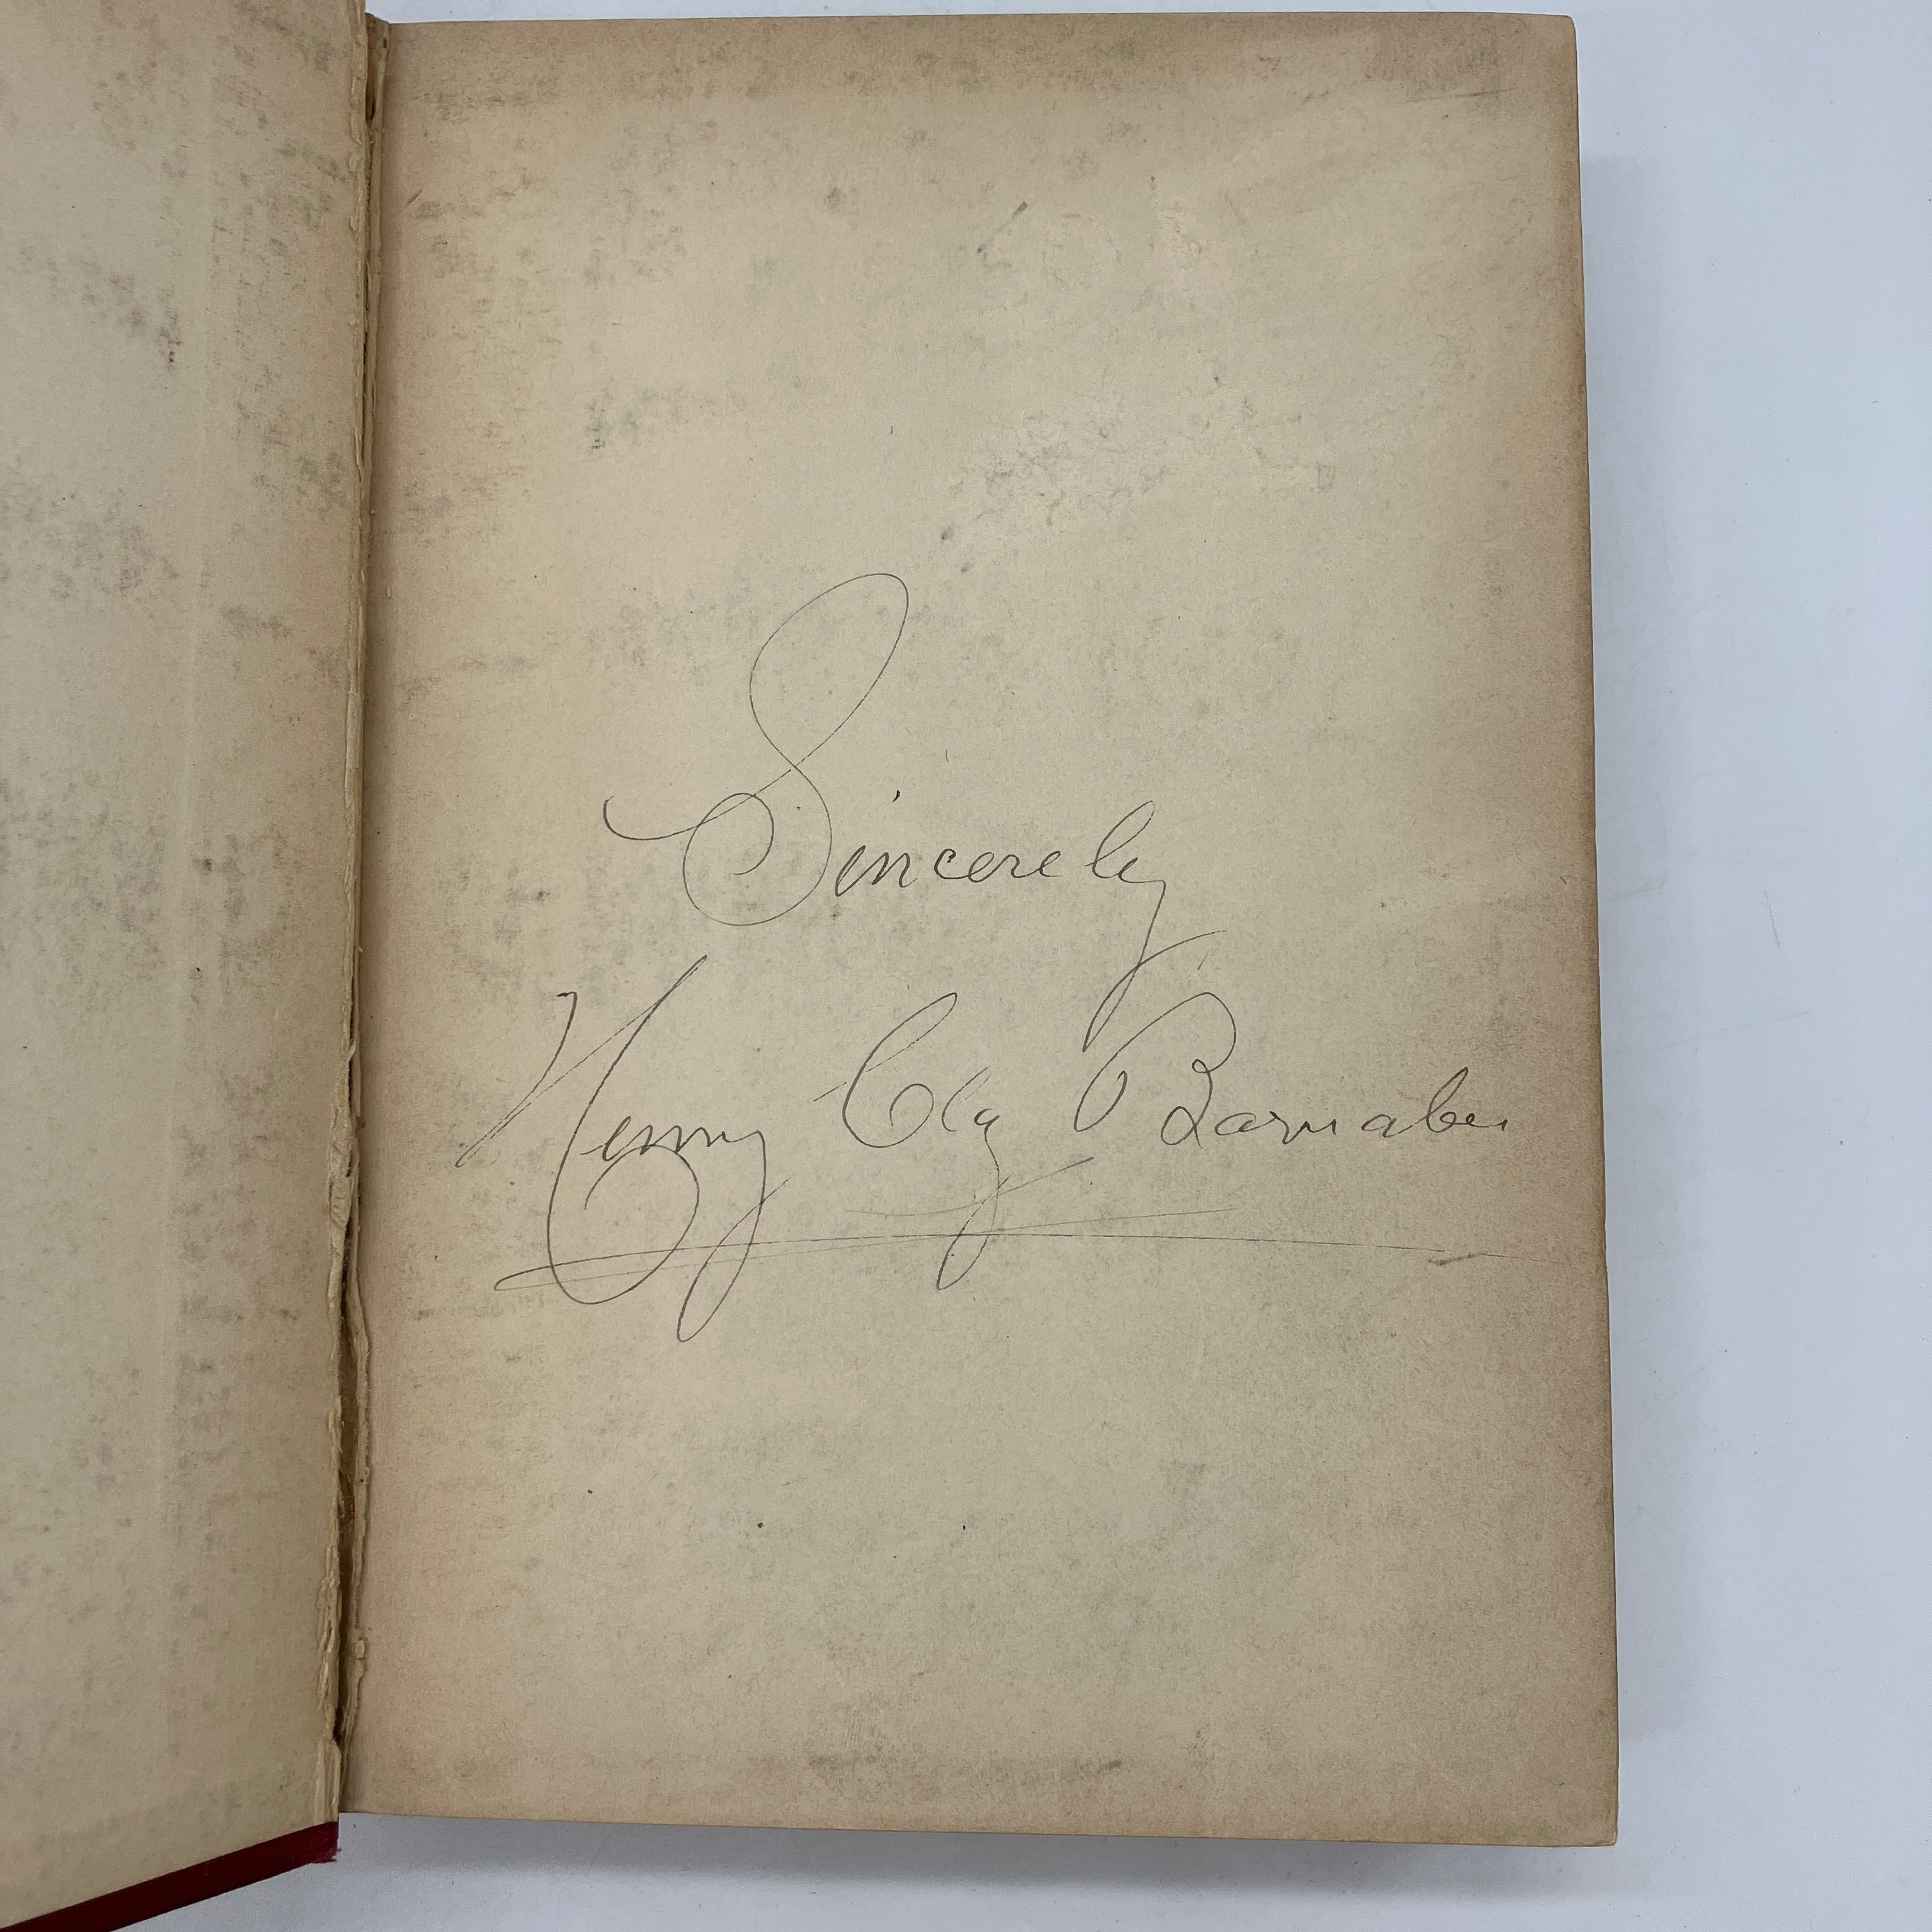 Sincerely
Henry Clay Barnabee